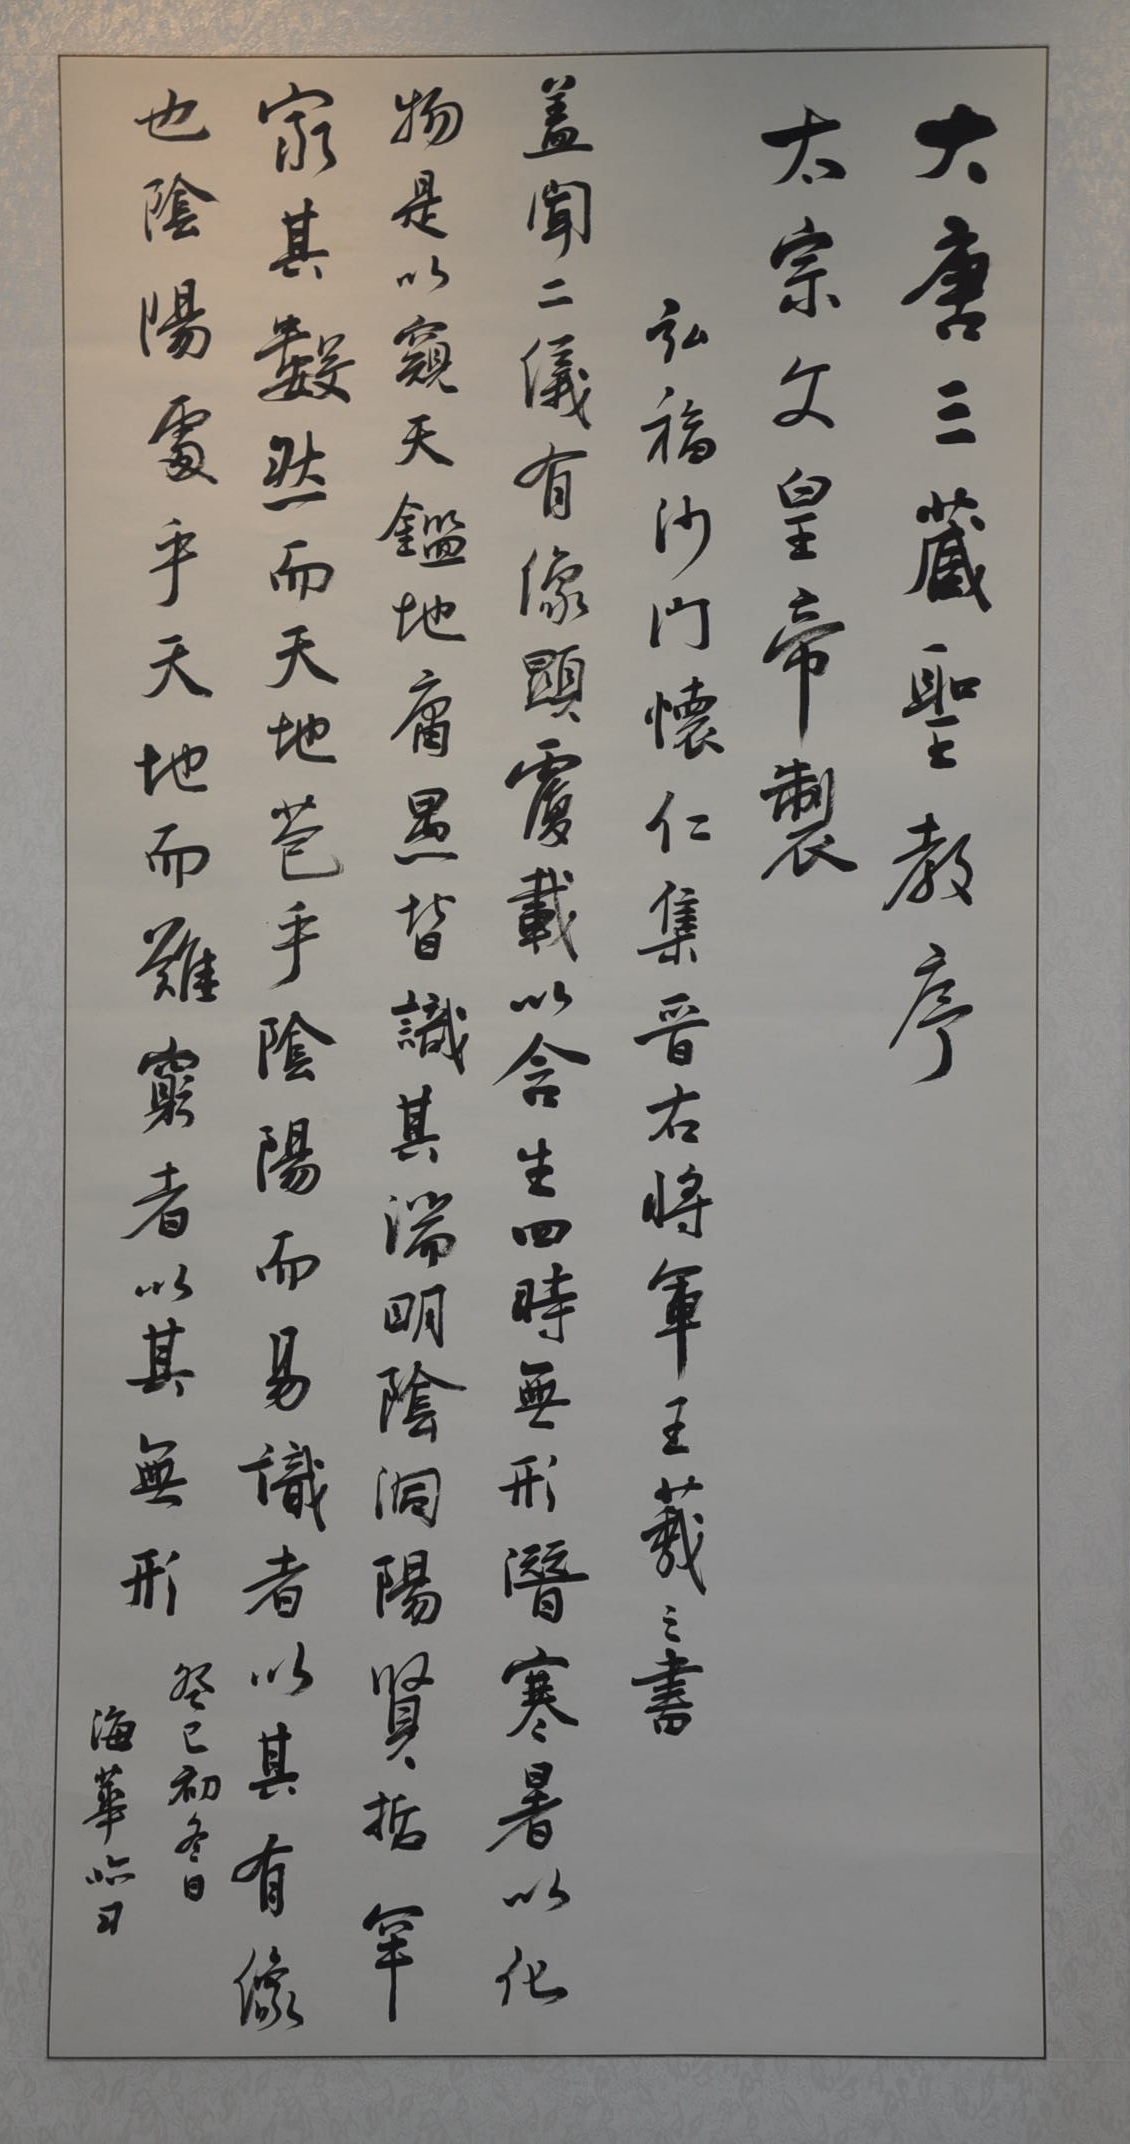 大唐三藏聖教序
太宗文皇帝製
弘福沙門懷仁集晋右將軍王羲之書
蓋聞二儀有像顯覆載以含生四時無形潛寒暑以化
物是以窺天鑑地庸愚皆識其端明陰洞陽賢哲罕
窮其數然而天地苞乎陰陽而易識者以其有像
也陰陽處乎天地而難窮者以其無形
癸巳初冬日
海華臨習